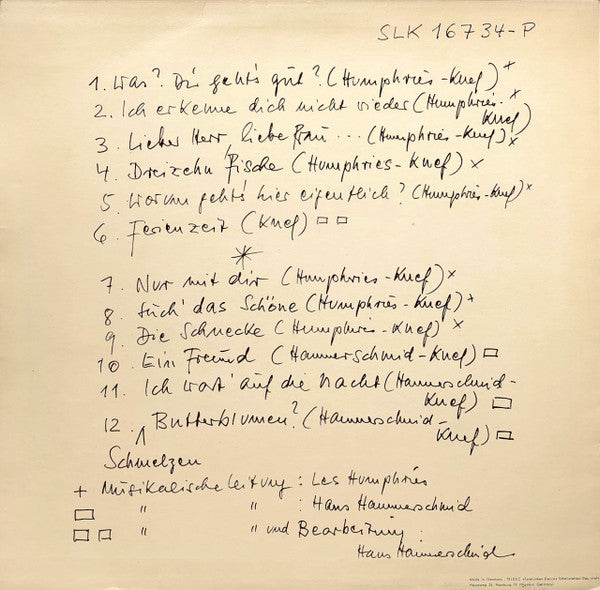 SLK 16734-P
1. Was? Dir geht's gut? (Humphries-Knef) +
2. Ich erkenne dich nicht wieder (Humphries- x
Knef)
3. Lieber Herr, liebe Frau ... (Humphries-Knef) x
4. Dreizehn Fische (Humphries-Knef) x
5. Worum geht's hier eigentlich? (Humphries-Knef) x
6. Ferienzeit (Knef) □ □
*
7. Nur mit dir (Humphries-Knef) x
8. Such' das Schöne (Humphries-Knef) +
9. Die Schnecke (Humphries-Knef) x
10. Ein Freund (Hammerschmid-Knef) □
11. Ich wart' auf die Nacht (Hammerschmid-
Knef) □
12. Butterblumen? (Hammerschmid-
Knef) □
Schmelzen
+ Musikalische Leitung : Les Humphries
□ " " : Hans Hammerschmid
□ □ " " und Bearbeitung :
Hans Hammerschmid
Made in Germany